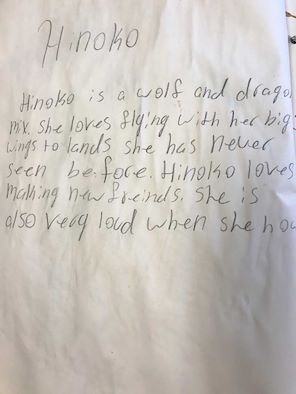 Hinoko
Hinoko is a wolf and drago
mix. She loves flying with her big
wings to lands she has never
seen be.fore. Hinoko loves
making new freinds. She is
also very loud when she how